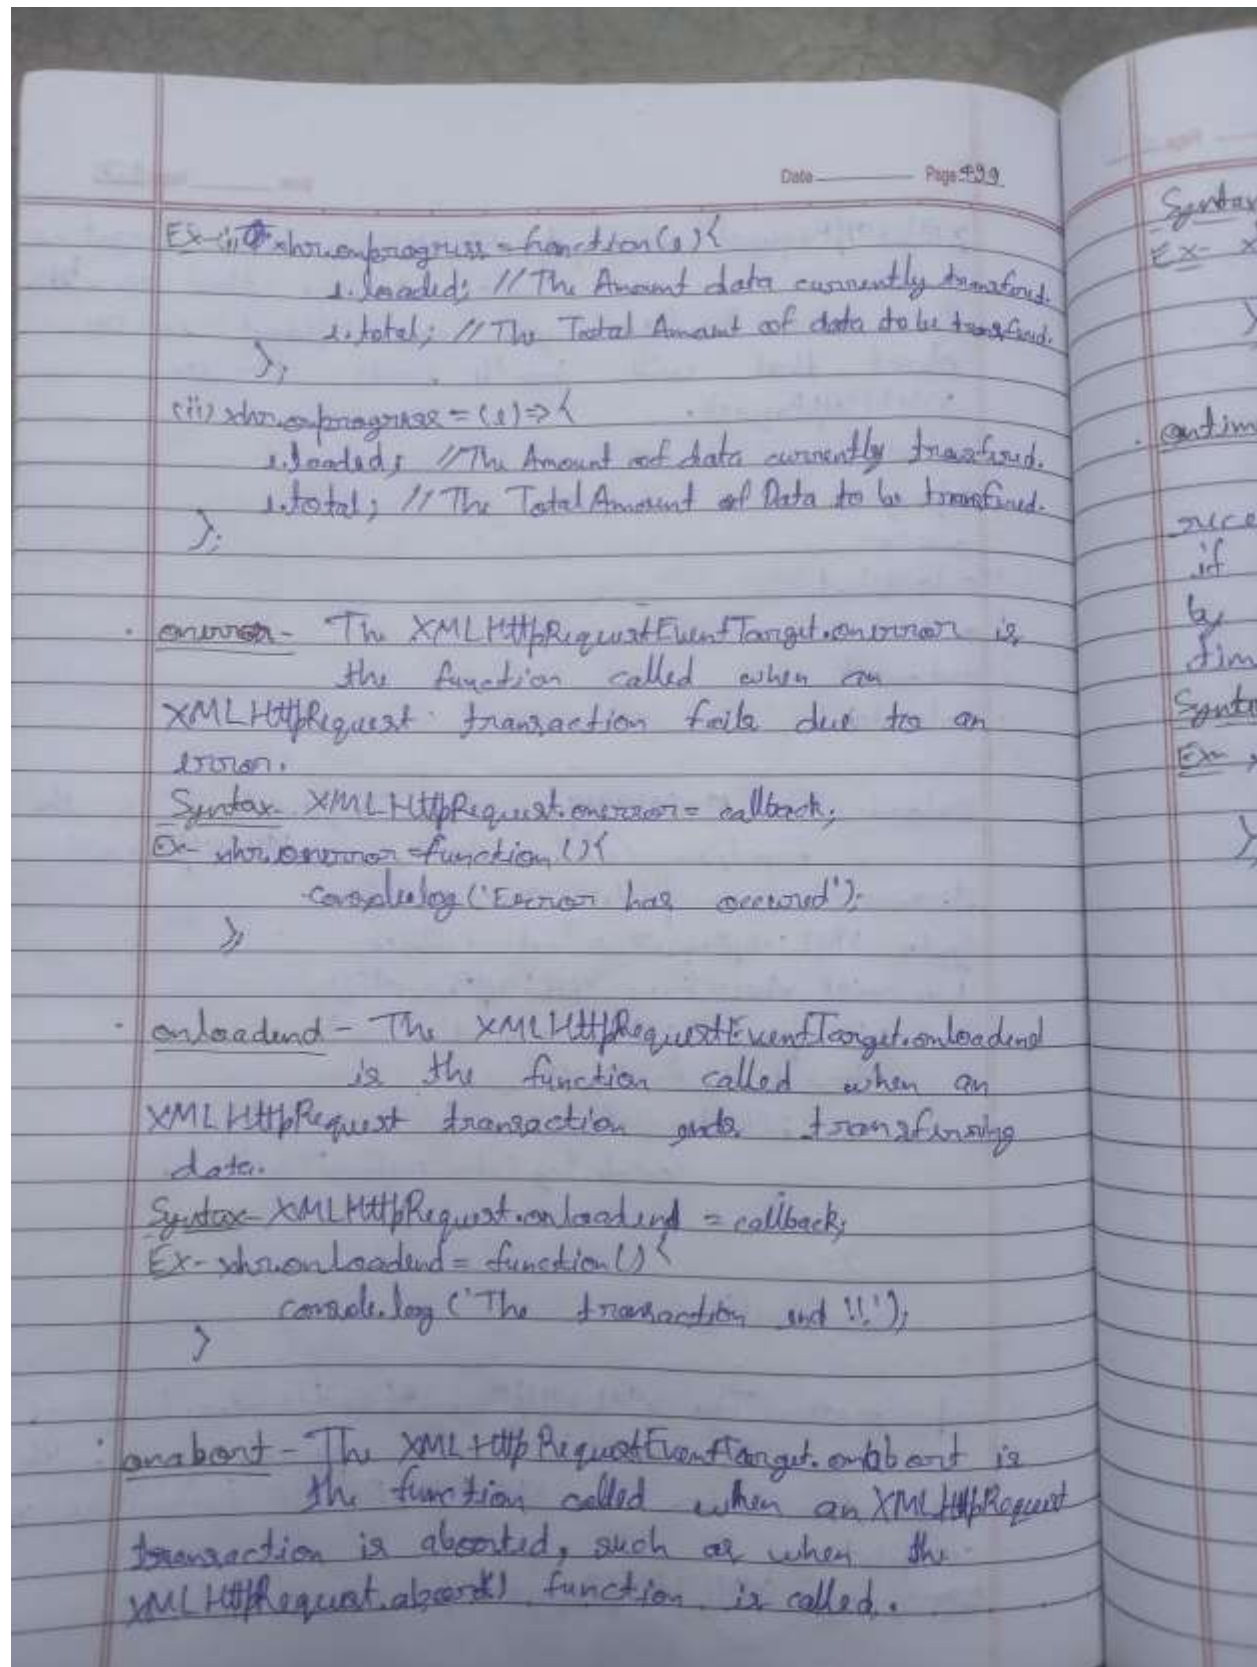 Date Page 499
Ex-(i) xhr.onprogress = function(e){
e.loaded; // The Amount data currently transfered.
e.total; // The Total Amount of data to be transfered.
};
(ii) xhr.onprogress = (e)=>{
e.loaded; // The Amount of data currently transfered.
e.total; // The Total Amount of Data to be transfered.
};
• onerror - The XMLHttpRequestEventTarget.onerror is
the function called when an
XMLHttpRequest transaction fails due to an
error.
Syntax- XMLHttpRequest.onerror = callback;
Ex- xhr.onerror = function(){
console.log('Error has occured');
};
• onloadend - The XMLHttpRequestEventTarget.onloadend
is the function called when an
XMLHttpRequest transaction ends transferring
data.
Syntax- XMLHttpRequest.onloadend = callback;
Ex- xhr.onloadend = function(){
console.log('The transaction end !!');
}
• onabort - The XMLHttpRequestEventTarget.onabort is
the function called when an XMLHttpRequest
transaction is aborted, such as when the
XMLHttpRequest.abort() function is called.
Syntax
Ex- x
}
• ontim
if
by
tim
Synta
Ex-
}